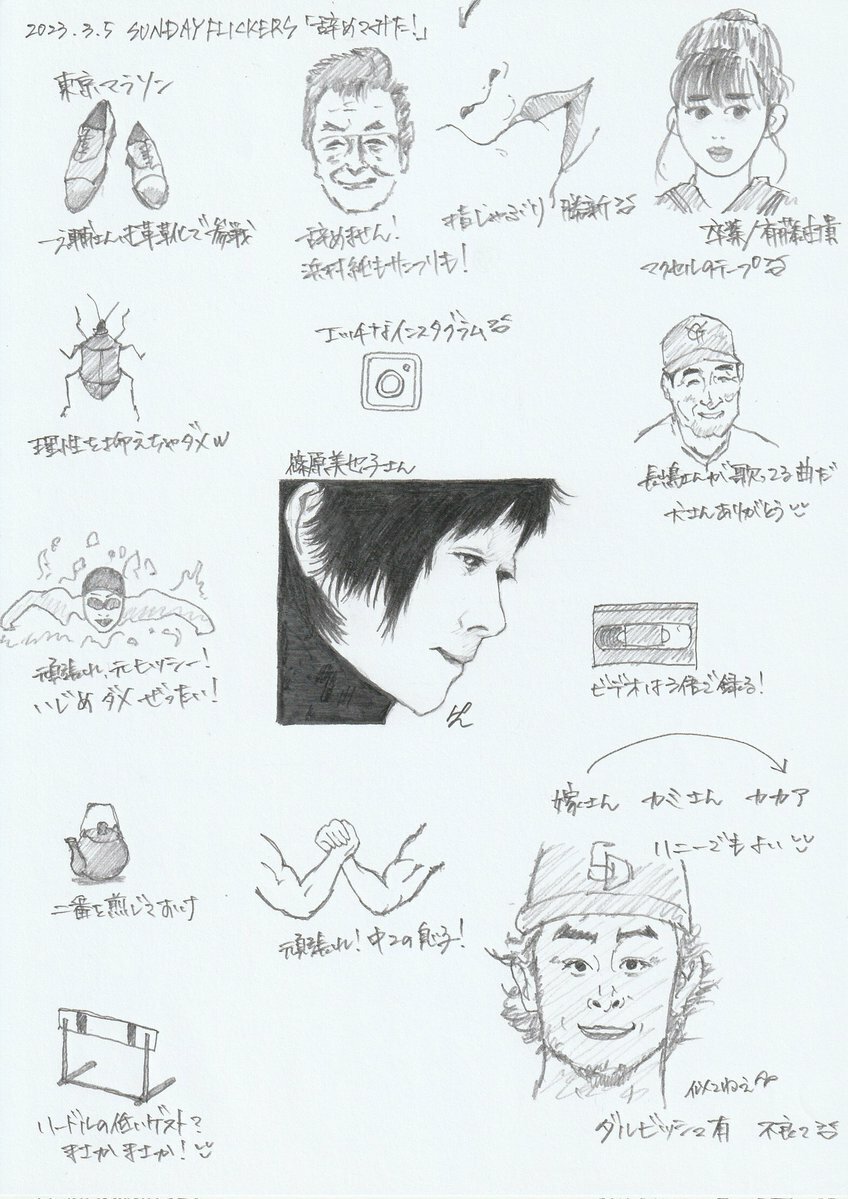 2023.3.5 SUNDAYFLICKERS「辞めてみた!」
東京マラソン
一之輔さんは革靴で参戦
辞めません!
浜村純もサンプリも!
指しゃぶり 勝新
卒業/斉藤由貴
マクセルのテープ
エッチなインスタグラム
理性を抑えちゃダメw
長嶋さんが歌ってる曲だ
犬さんありがとう
篠原美也子さん
頑張れ、元ヒッシー!
いじめダメぜったい!
ビデオは3倍で録る!
嫁さん カミさん カカア
ハニーでもよい
SD
二番を煎じておけ
頑張れ!中2の息子!
ハードルの低いゲスト?
まさかまさか!
似てねぇ
ダルビッシュ有 不良て